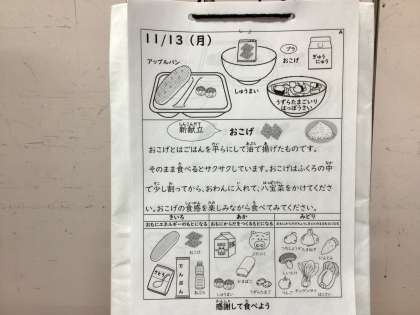 11/13 (月)
A
アップルパン
プラ
おこげ
ぎゅう
にゅう
しゅうまい
うずらたまごいり
はっぽうさい
新献立
おこげ
おこげとはごはんを平らにして油で揚げたものです。
そのまま食べるとサクサクしています。おこげはふくろの中
で少し割ってから、おわんに入れて、八宝菜をかけてくださ
い。おこげの食感を楽しみながら食べてみてください。
きいろ
あか
みどり
おもにエネルギーのもとになる
おもにからだをつくるもとになる
おこげ
さとう
でんぷん
あぶら
しゅうまい
うずらたまご
にんじん
しいたけ
はくさい
感謝して食べよう